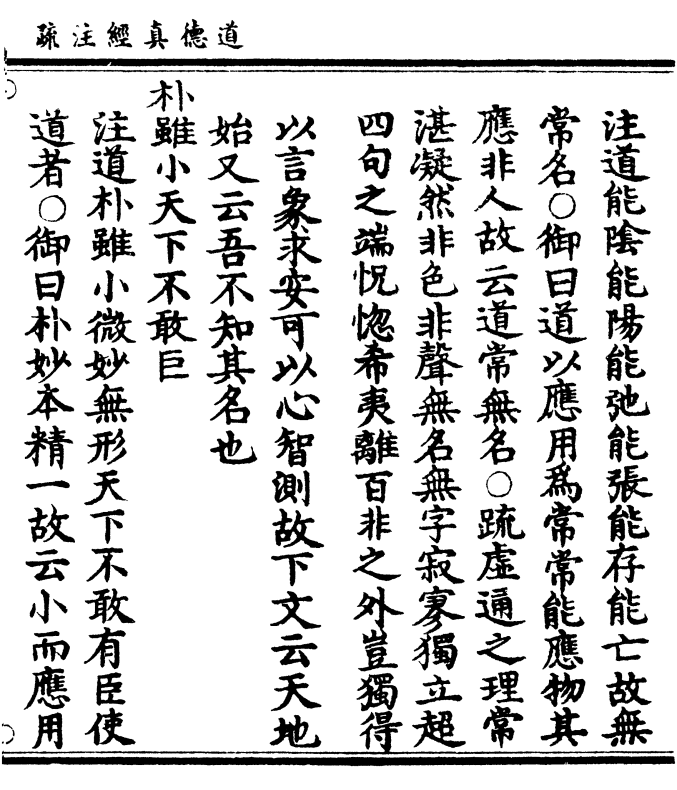 道德真經注疏
注道能陰能陽能弛能張能存能亡故無
常名○御曰道以應用爲常常能應物其
應非人故云道常無名○疏虛通之理常
湛凝然非色非聲無名無字寂寥獨立超
四句之端怳惚希夷離百非之外豈獨得
以言象求安可以心智測故下文云天地
始又云吾不知其名也
朴雖小天下不敢臣
注道朴雖小微妙無形天下不敢有臣使
道者○御曰朴妙本精一故云小而應用